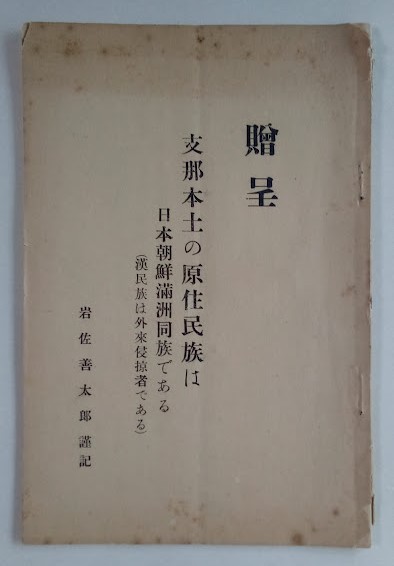 贈呈
支那本土の原住民族は
日本朝鮮滿洲同族である
(漢民族は外來侵掠者である)
岩佐善太郎謹記